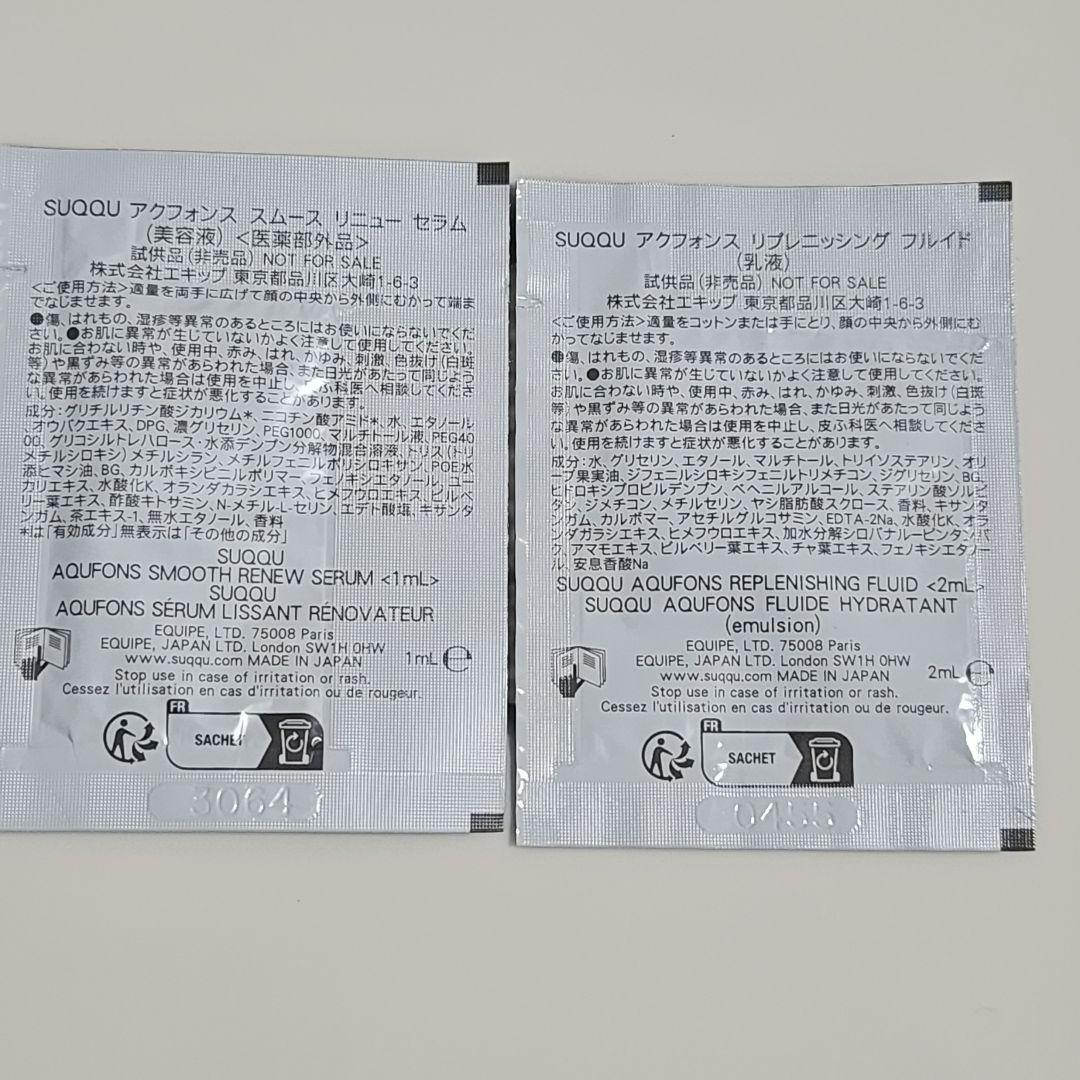 SUQQU アクフォンス スムース リニュー セラム
(美容液) <医薬部外品>
試供品(非売品) NOT FOR SALE
株式会社エキップ 東京都品川区大崎1-6-3
<ご使用方法>適量を両手に広げて顔の中央から外側にむかって端ま
でなじませます。
●傷、はれもの、湿疹等異常のあるところにはお使いにならないでくだ
さい。●お肌に異常が生じていないかよく注意して使用してください。
お肌に合わない時や、使用中、赤み、はれ、かゆみ、刺激、色抜け(白斑
等)や黒ずみ等の異常があらわれた場合、また日光があたって同じよう
な異常があらわれた場合は使用を中止し、皮ふ科医へ相談してくださ
い。使用を続けますと症状が悪化することがあります。
成分:グリチルリチン酸ジカリウム*、ニコチン酸アミド*、水、エタノール
、オウバクエキス、DPG、濃グリセリン、PEG1000、マルチトール液、PEG40
00、グリコシルトレハロース・水添デンプン分解物混合溶液、トリス(トリ
メチルシロキシ)メチルシラン、メチルフェニルポリシロキサン、POE水
添ヒマシ油、BG、カルボキシビニルポリマー、フェノキシエタノール、ユー
カリエキス、水酸化K、オランダカラシエキス、ヒメフウロエキス、ビルベ
リー葉エキス、酢酸キトサミン、N-メチル-L-セリン、エデト酸塩、キサンタ
ンガム、茶エキス-1、無水エタノール、香料
*は「有効成分」無表示は「その他の成分」
SUQQU
AQUFONS SMOOTH RENEW SERUM <1mL>
SUQQU
AQUFONS SÉRUM LISSANT RÉNOVATEUR
EQUIPE, LTD. 75008 Paris
EQUIPE, JAPAN LTD. London SW1H 0HW
www.suqqu.com MADE IN JAPAN
1mL ℮
Stop use in case of irritation or rash.
Cessez l'utilisation en cas d'irritation ou de rougeur.
FR
SACHET
3064
SUQQU アクフォンス リプレニッシング フルイド
(乳液)
試供品(非売品) NOT FOR SALE
株式会社エキップ 東京都品川区大崎1-6-3
<ご使用方法>適量をコットンまたは手にとり、顔の中央から外側にむ
かってなじませます。
●傷、はれもの、湿疹等異常のあるところにはお使いにならないでくだ
さい。●お肌に異常が生じていないかよく注意して使用してください。
お肌に合わない時や、使用中、赤み、はれ、かゆみ、刺激、色抜け(白斑
等)や黒ずみ等の異常があらわれた場合、また日光があたって同じよう
な異常があらわれた場合は使用を中止し、皮ふ科医へ相談してくださ
い。使用を続けますと症状が悪化することがあります。
成分:水、グリセリン、エタノール、マルチトール、トリイソステアリン、オリ
ーブ果実油、ジフェニルシロキシフェニルトリメチコン、ジグリセリン、BG、
ヒドロキシプロピルデンプン、ベヘニルアルコール、ステアリン酸ソルビ
タン、ジメチコン、メチルセリン、ヤシ脂肪酸スクロース、香料、キサンタ
ンガム、カルボマー、アセチルグルコサミン、EDTA-2Na、水酸化K、オラ
ンダガラシエキス、ヒメフウロエキス、加水分解シロバナルーピンタンパ
ク、アマモエキス、ビルベリー葉エキス、チャ葉エキス、フェノキシエタノー
ル、安息香酸Na
SUQQU AQUFONS REPLENISHING FLUID <2mL>
SUQQU AQUFONS FLUIDE HYDRATANT
(emulsion)
EQUIPE, LTD. 75008 Paris
EQUIPE, JAPAN LTD. London SW1H 0HW
www.suqqu.com MADE IN JAPAN
2mL ℮
Stop use in case of irritation or rash.
Cessez l'utilisation en cas d'irritation ou de rougeur.
FR
SACHET
0455